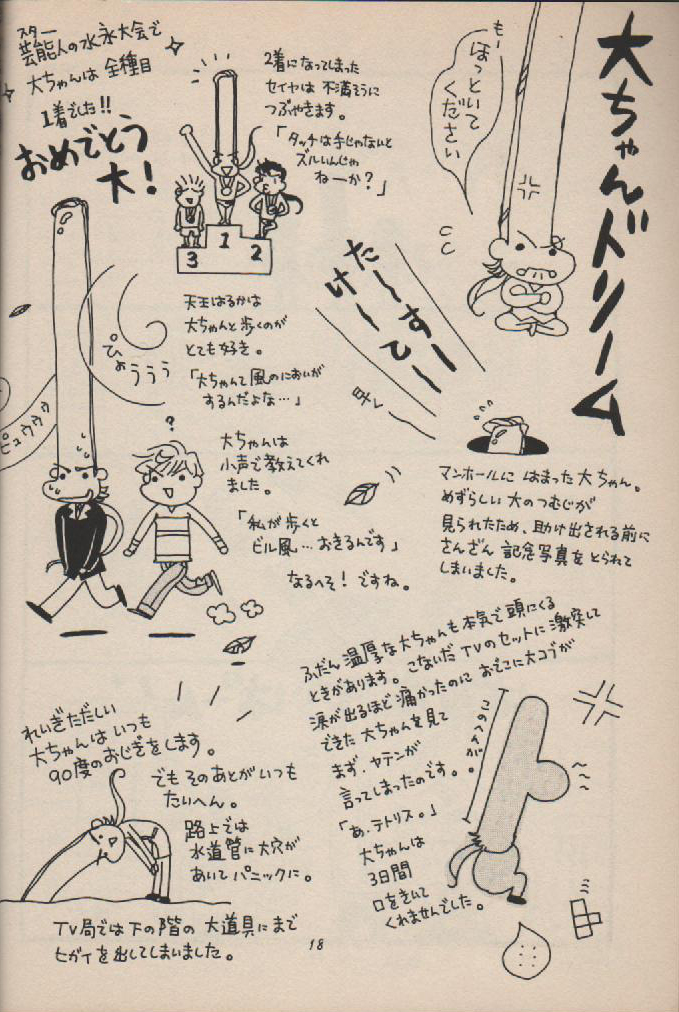 大ちゃんドリーム
もー
ほっといて
ください
た〜すー
け〜て〜
マンホールに はまった大ちゃん。
めずらしい 大のつむじが
見られたため、助け出される前に
さんざん 記念写真をとられて
しまいました。
スター
芸能人の水永大会で
大ちゃんは 全種目
1着でした!!
おめでとう
大!
2着になってしまった
セイヤは 不満そうに
つぶやきます。
「タッチは手じゃないと
ズルいんじゃ
ねーか?」
3
1
2
天王はるかは
大ちゃんと歩くのが
とても好き。
「大ちゃんて風のにおいが
するんだよな…」
ぴゅううう
ピュウゥゥ
?
大ちゃんは
小声で教えてくれ
ました。
「私が歩くと
ビル風…おきるんです」
なるへそ! ですね。
れいぎただしい
大ちゃんは いつも
90度のおじぎをします。
でも そのあとがいつも
たいへん。
路上では
水道管に大穴が
あいてパニックに。
TV局では下の階の 大道具にまで
ヒガイを出してしまいました。
ふだん温厚な大ちゃんも本気で頭にくる
ときがあります。こないだ TVのセットに激突して
涙が出るほど痛かったのに おでこに大コブが
できた 大ちゃんを見て
まず、ヤテンが
言ってしまったのです。
「あ、テトリス。」
大ちゃんは
3日間
口をきいて
くれませんでした。
18